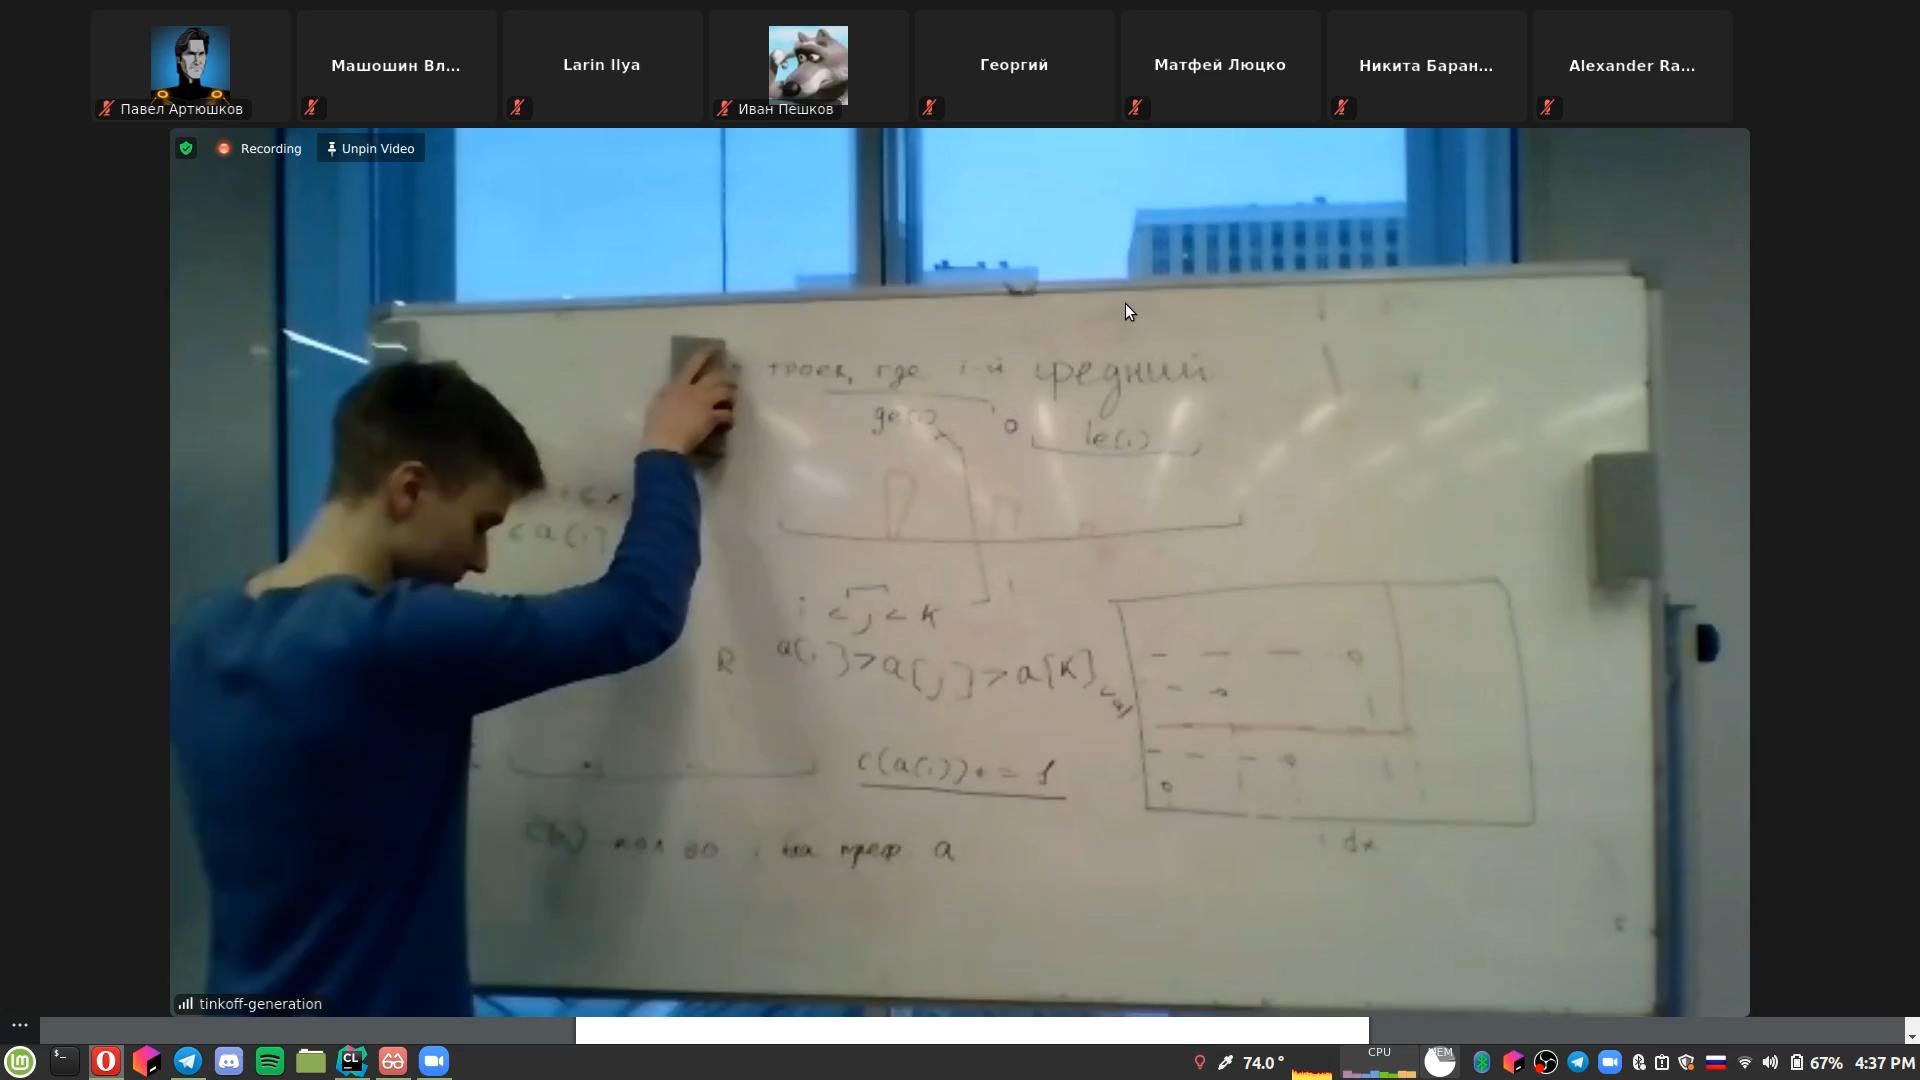 Павел Артюшков
Машошин Вл...
Larin Ilya
Иван Пешков
Георгий
Матфей Люцко
Никита Баран...
Alexander Ra...
Recording
Unpin Video
троек, где i-й средний
ge(i) le(i)
c a[i]
i < j < k
R a[i] > a[j] > a[k]
c(a(i)) += 1
кол во i на преф a
dx
tinkoff-generation
CL
74.0°
CPU
MEM
67%
4:37 PM